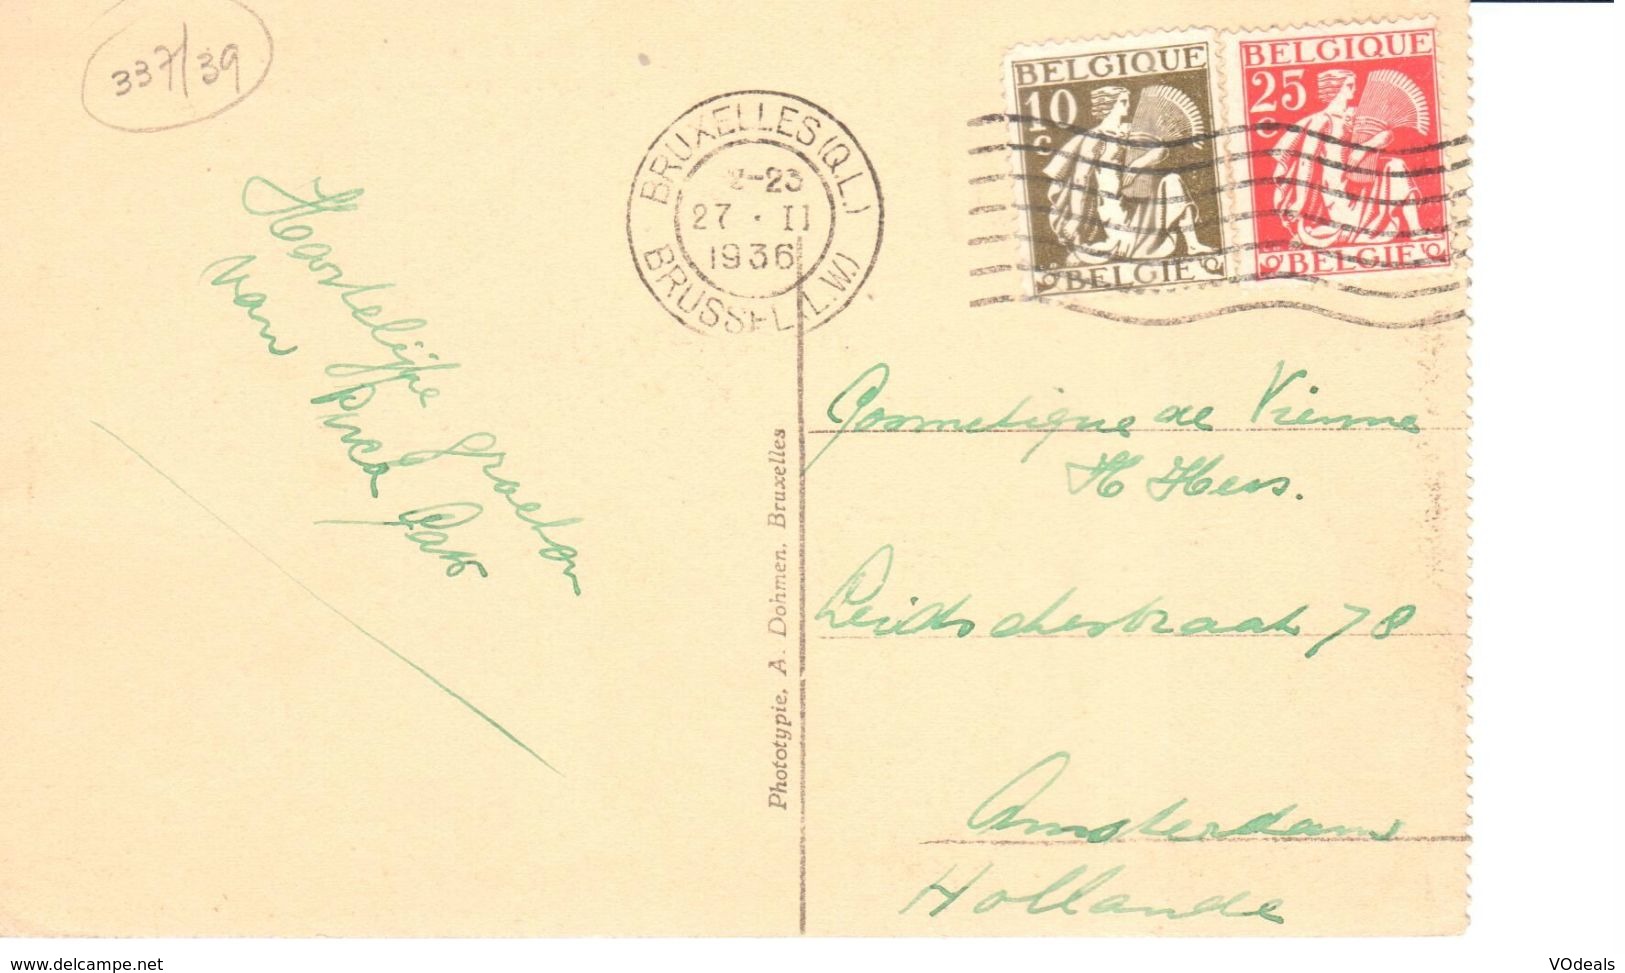 337/39
BRUXELLES (Q.L.)
-23
27 · II
1936
BRUSSEL (L.W.)
BELGIQUE
10
c
BELGIE
BELGIQUE
25
c
BELGIE
Hartelijke groeten
van
Cosmetique de Vienne
H Hess.
Leidschestraat 78
Amsterdam
Hollande
Phototypie, A. Dohmen, Bruxelles
www.delcampe.net
VOdeals